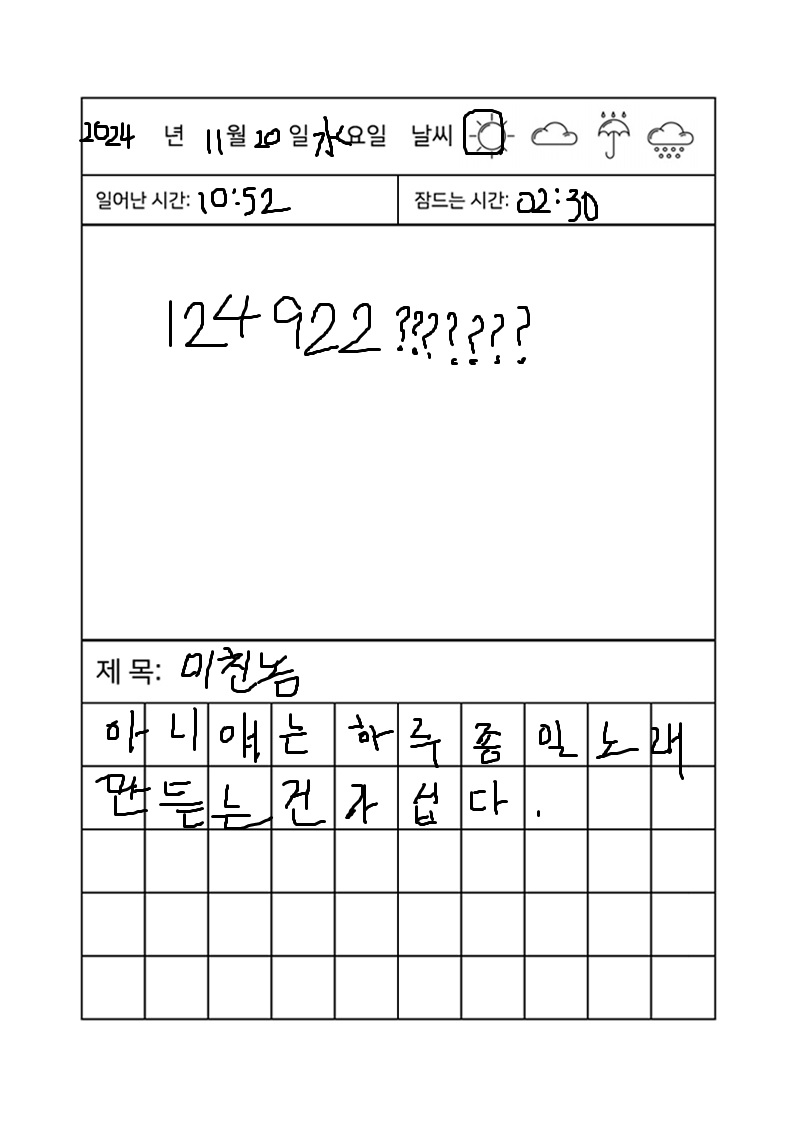 2024 년 11월 20 일 水요일 날씨
일어난 시간: 10:52 잠드는 시간: 02:30
124922???????
제 목: 미친놈
아니얘는하루종일노래
만든는건가섭다.